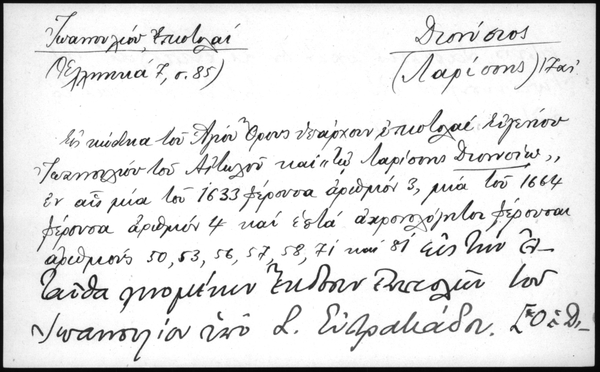 Ἰωαννουλίου, Ἐπιστολαί
(Ἑλληνικά 7, σ. 85)
Διονύσιος
(Λαρίσσης) 17 αἰ
Εἰς κώδικα τοῦ Ἁγίου Ὄρους ὑπάρχουν ἐπιστολαί Εὐγενίου
Ἰωαννουλίου τοῦ Αἰτωλοῦ καί "τῷ Λαρίσσης Διονυσίῳ,,
ἐν αἷς μία τοῦ 1633 φέρουσα ἀριθμόν 3, μία τοῦ 1664
φέρουσα ἀριθμόν 4 καί ἑπτά ἀχρονολόγητοι φέρουσαι
ἀριθμούς 50, 53, 56, 57, 58, 71 καί 81 εἰς τήν ἐν-
ταῦθα γινομένην ἔκδοσιν ἐπιστολῶν τοῦ
Ἰωαννουλίου ὑπό Σ. Εὐστρατιάδου.